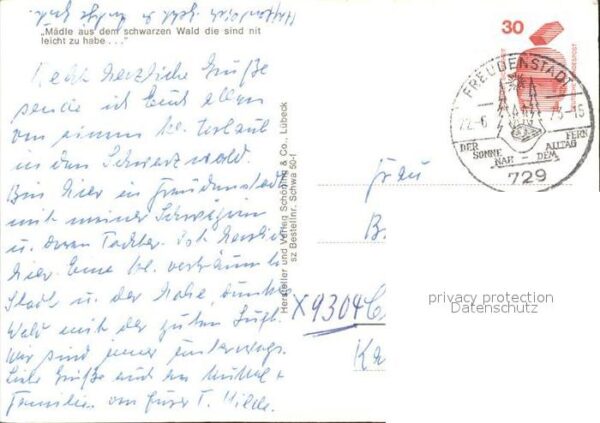 „Mädle aus dem schwarzen Wald die sind nit
leicht zu habe . . ."
Recht herzliche Grüße
sende ich Euch allen
von einem kl. Urlaub
in den Schwarzwald.
Bin hier in Freudenstadt
mit meiner Schwägerin
u. deren Tochter. Ist herrlich
hier. Eine kl. verträumte
Stadt u. der hohe, dunkle
Wald mit der guten Luft.
Wir sind immer unterwegs.
Liebe Grüße auch an Mutter +
Familie von Eurer T. Hilde.
Hersteller und Verlag Schöning & Co., Lübeck
sz Bestellnr. Schwa 50-f
30
FREUDENSTADT
22.-6.
73-15
DER SONNE NAH – DEM ALLTAG FERN
729
Frau
B.
X9304C
Ka
privacy protection
Datenschutz